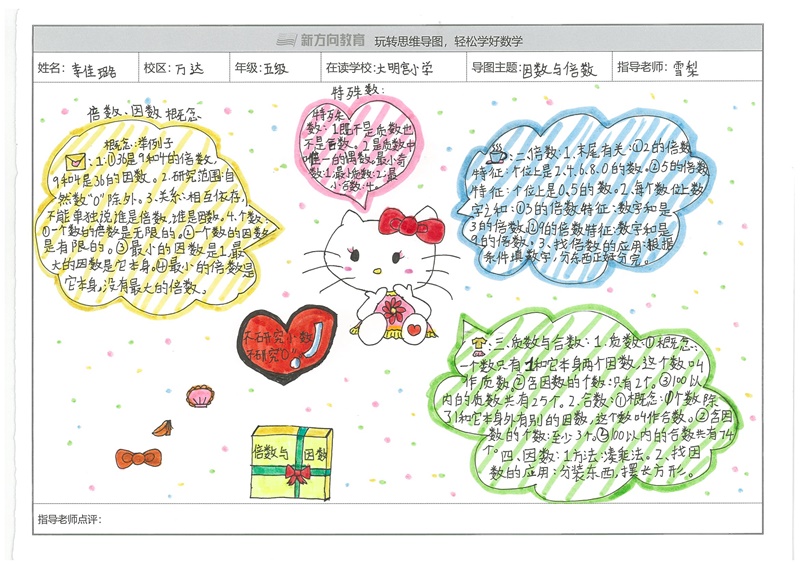 新方向教育 玩转思维导图，轻松学好数学
姓名：幸佳璐 校区：万达 年级：五级 在读学校：大明宫小学 导图主题：因数与倍数 指导老师：雪梨
倍数、因数概念
概念：举例子
：1.①36是9和4的倍数，
9和4是36的因数。2.研究范围：自
然数"0"除外。3.关系：相互依存，
不能单独说谁是倍数，谁是因数。4.个数：
①一个数的倍数是无限的。②一个数的因数
是有限的。③最小的因数是1，最
大的因数是它本身。④最小的倍数是
它本身，没有最大的倍数。
特殊数：
特殊
数：1既不是质数也
不是合数。2是质数中
唯一的偶数。最小奇
数：1，最小质数：2，最
小合数：4。
：二、倍数：1.末尾有关：①2的倍数
特征：个位上是2.4.6.8.0的数。②5的倍数
特征：个位上是0、5的数。2、每个数位上数
字之和：①3的倍数特征：数字和是
3的倍数。②9的倍数特征：数字和是
9的倍数。3、找倍数的应用：根据
条件填数字，分东西正好分完。
不研究小数
不研究"0"
：三、质数与合数：1.质数：①概念：
一个数只有1和它本身两个因数，这个数叫
作质数。②含因数的个数：只有2个。③100以
内的质数共有25个。2.合数：①概念：1个数除
了1和它本身外有别的因数，这个数叫作合数。②含因
数的个数：至少3个。③100以内的合数共有74
个。四、因数：1.方法：凑乘法。2、找因
数的应用：分装东西，摆长方形。
倍数与 因数
指导老师点评：